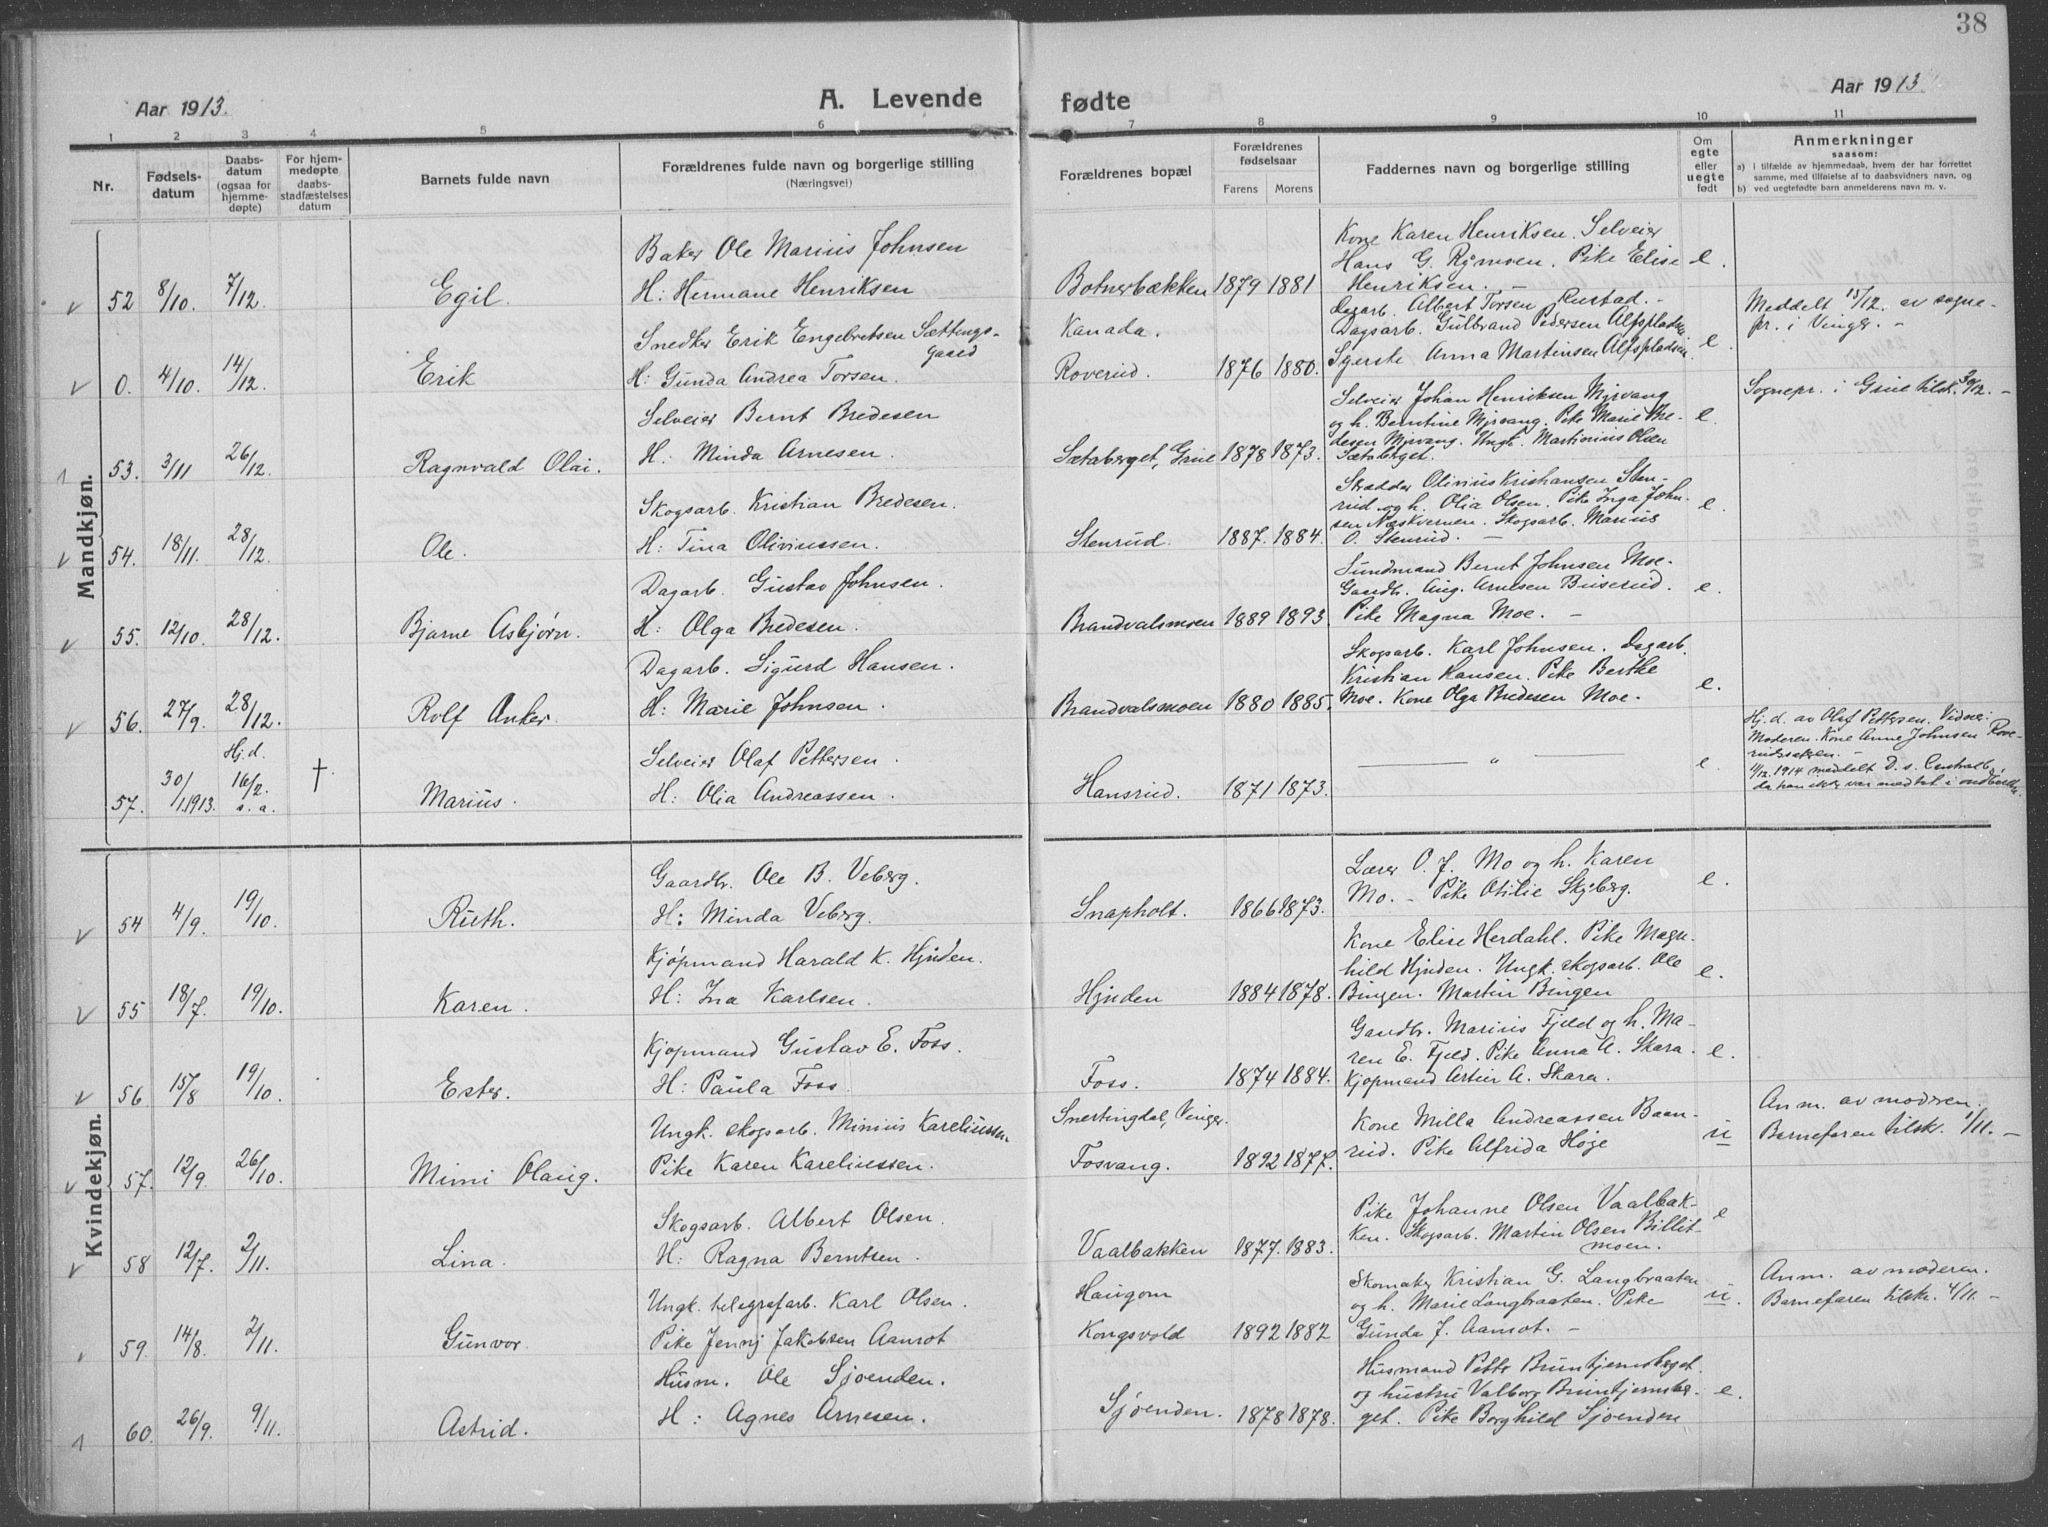 38
Aar 1913.
A. Levende
fødte
Aar 1913.
1 2 3 4 5 6 7 8 9 10 11
Nr.
Fødsels-
datum
Daabs-
datum
(ogsaa for
hjemme-
døpte)
For hjem-
medøpte
daabs-
stadfæstelses
datum
Barnets fulde navn
Forældrenes fulde navn og borgerlige stilling
(Næringsvei)
Forældrenes bopæl
Forældrenes
fødselsaar
Farens Morens
Faddernes navn og borgerlige stilling
Om
egte
eller
uegte
født
Anmerkninger
saasom:
a) i tilfælde av hjemmedaab, hvem der har forrettet
samme, med tilføielse af to daabsvidners navn, og
b) ved uegtefødte barn anmelderens navn m. v.
Mandkjøn.
52 8/10. 7/12. Egil.
Baker Ole Marius Johnsen
H: Hermane Henriksen
Botnerbækken 1879 1881
Kone Karen Henriksen. Selveier
Hans G. Rymoen. Pike Elise
Henriksen. —
e.
0. 4/10. 14/12. Erik
Snedker Erik Engebretsen Sættings-
gaard
H: Gunda Andrea Torsen.
Kanada.
Roverud. 1876 1880.
Dagarb. Albert Torsen Rustad. -
Dagsarb. Gulbrand Pedersen Alfspladsen
Syerske Anna Martinsen Alfspladsen.
e.
Meddelt 15/12. av sogne-
pr. i Vinger. -
53. 3/11 26/12. Ragnvald Olai.
Selveier Bernt Bredesen
H: Minda Arnesen.
Sætaberget, Grue 1878 1873.
Selveier Johan Henriksen Myrvang
og h. Berntine Myrvang. Pike Marie Bre-
desen Myrvang. Ungk. Martinius Olsen
Sætaberget.
e.
Sognepr. i Grue tilsk. 30/12. -
54. 18/11. 28/12. Ole.
Skogsarb. Kristian Bredesen.
H: Tina Oliviussen.
Stenrud. 1887. 1884.
Skrædder Olivius Kristiansen Sten-
rud og h. Olia Olsen. Pike Inga John-
sen Næskvernen. Skogsarb. Marius
O. Stenrud. —
e.
55. 12/10. 28/12. Bjarne Asbjørn.
Dagarb. Gustav Johnsen.
H: Olga Bredesen.
Brandvalsmoen 1889 1893.
Sundmand Bernt Johnsen Moe.
Gaardbr. Aug. Arnesen Buserud.
Pike Magna Moe. —
e.
56. 27/9. 28/12. Rolf Anker.
Dagarb. Sigurd Hansen.
H: Marie Johnsen.
Brandvalsmoen 1880 1885.
Skogsarb. Karl Johnsen. Dagarb.
Kristian Hansen. Pike Berthe
Moe. Kone Olga Bredesen Moe.
e.
57. 30/1.1913. Hj.d. 16/2. s.a. † Marius.
Selveier Olaf Pettersen.
H: Olia Andreassen.
Hansrud. 1871 1873.
— „ —
e.
Hj.d. av Olaf Pettersen. Vidner:
Moderen. Kone Anne Johnsen Rove-
rudssætren. —
11/12. 1914 meddelt D. s. Centralb.,
da han ikke var medtat i
Kvindekjøn.
54 4/9. 19/10. Ruth.
Gaardbr. Ole B. Veberg.
H: Minda Veberg.
Snapholt. 1866 1873.
Lærer O. J. Mo og h. Karen
Mo. - Pike Otilie Skjberg.
e.
55 18/7. 19/10. Karen.
Kjøpmand Harald K. Hynden.
H: Ina Karlsen.
Hynden 1884 1878.
Kone Elise Herdahl. Pike Magn-
hild Hynden. Ungk. skogsarb. Ole
Bingen. Martin Bingen
e.
56 15/8 19/10. Ester.
Kjøpmand Gustav E. Foss.
H: Paula Foss.
Foss. 1874 1884.
Gaardbr. Marius Fjeld og h. Ma-
ren E. Fjeld. Pike Anna A. Skara.
Kjøpmand Artur A. Skara.
e.
57. 12/9. 26/10. Mimi Olaug.
Ungk. skogsarb. Minius Kareliussen
Pike Karen Kareliussen.
Snertingdal, Vinger.
Fosvang. 1892 1877.
Kone Milla Andreassen Baan-
rud. Pike Alfrida Høge
u
Anm. av moderen.
Barnefaren tilsk. 1/11. -
58 12/7. 2/11. Lina.
Skogsarb. Albert Olsen.
H: Ragna Berntsen.
Vaalbakken 1877. 1883.
Pike Johanne Olsen Vaalbak-
ken. Skogsarb. Martin Olsen Billit-
moen.
e
59. 14/8. 2/11. Gunvor.
Ungk. telegrafarb. Karl Olsen.
Pike Jenny Jakobsen Aamot
Haugom
Kongsvold 1892 1882
Skomaker Kristian G. Langbraaten
og h. Marie Langbraaten. Pike
Gunda J. Aamot. —
u.
Anm. av moderen.
Barnefaren tilsk. 4/11. -
60. 26/9. 9/11. Astrid.
Husm. Ole Sjøenden.
H: Agnes Arnesen.
Sjøenden. 1878 1878.
Husmand Petter Bruntjernsberget
og hustru Valborg Bruntjernsber-
get. Pike Borghild Sjøenden
e.